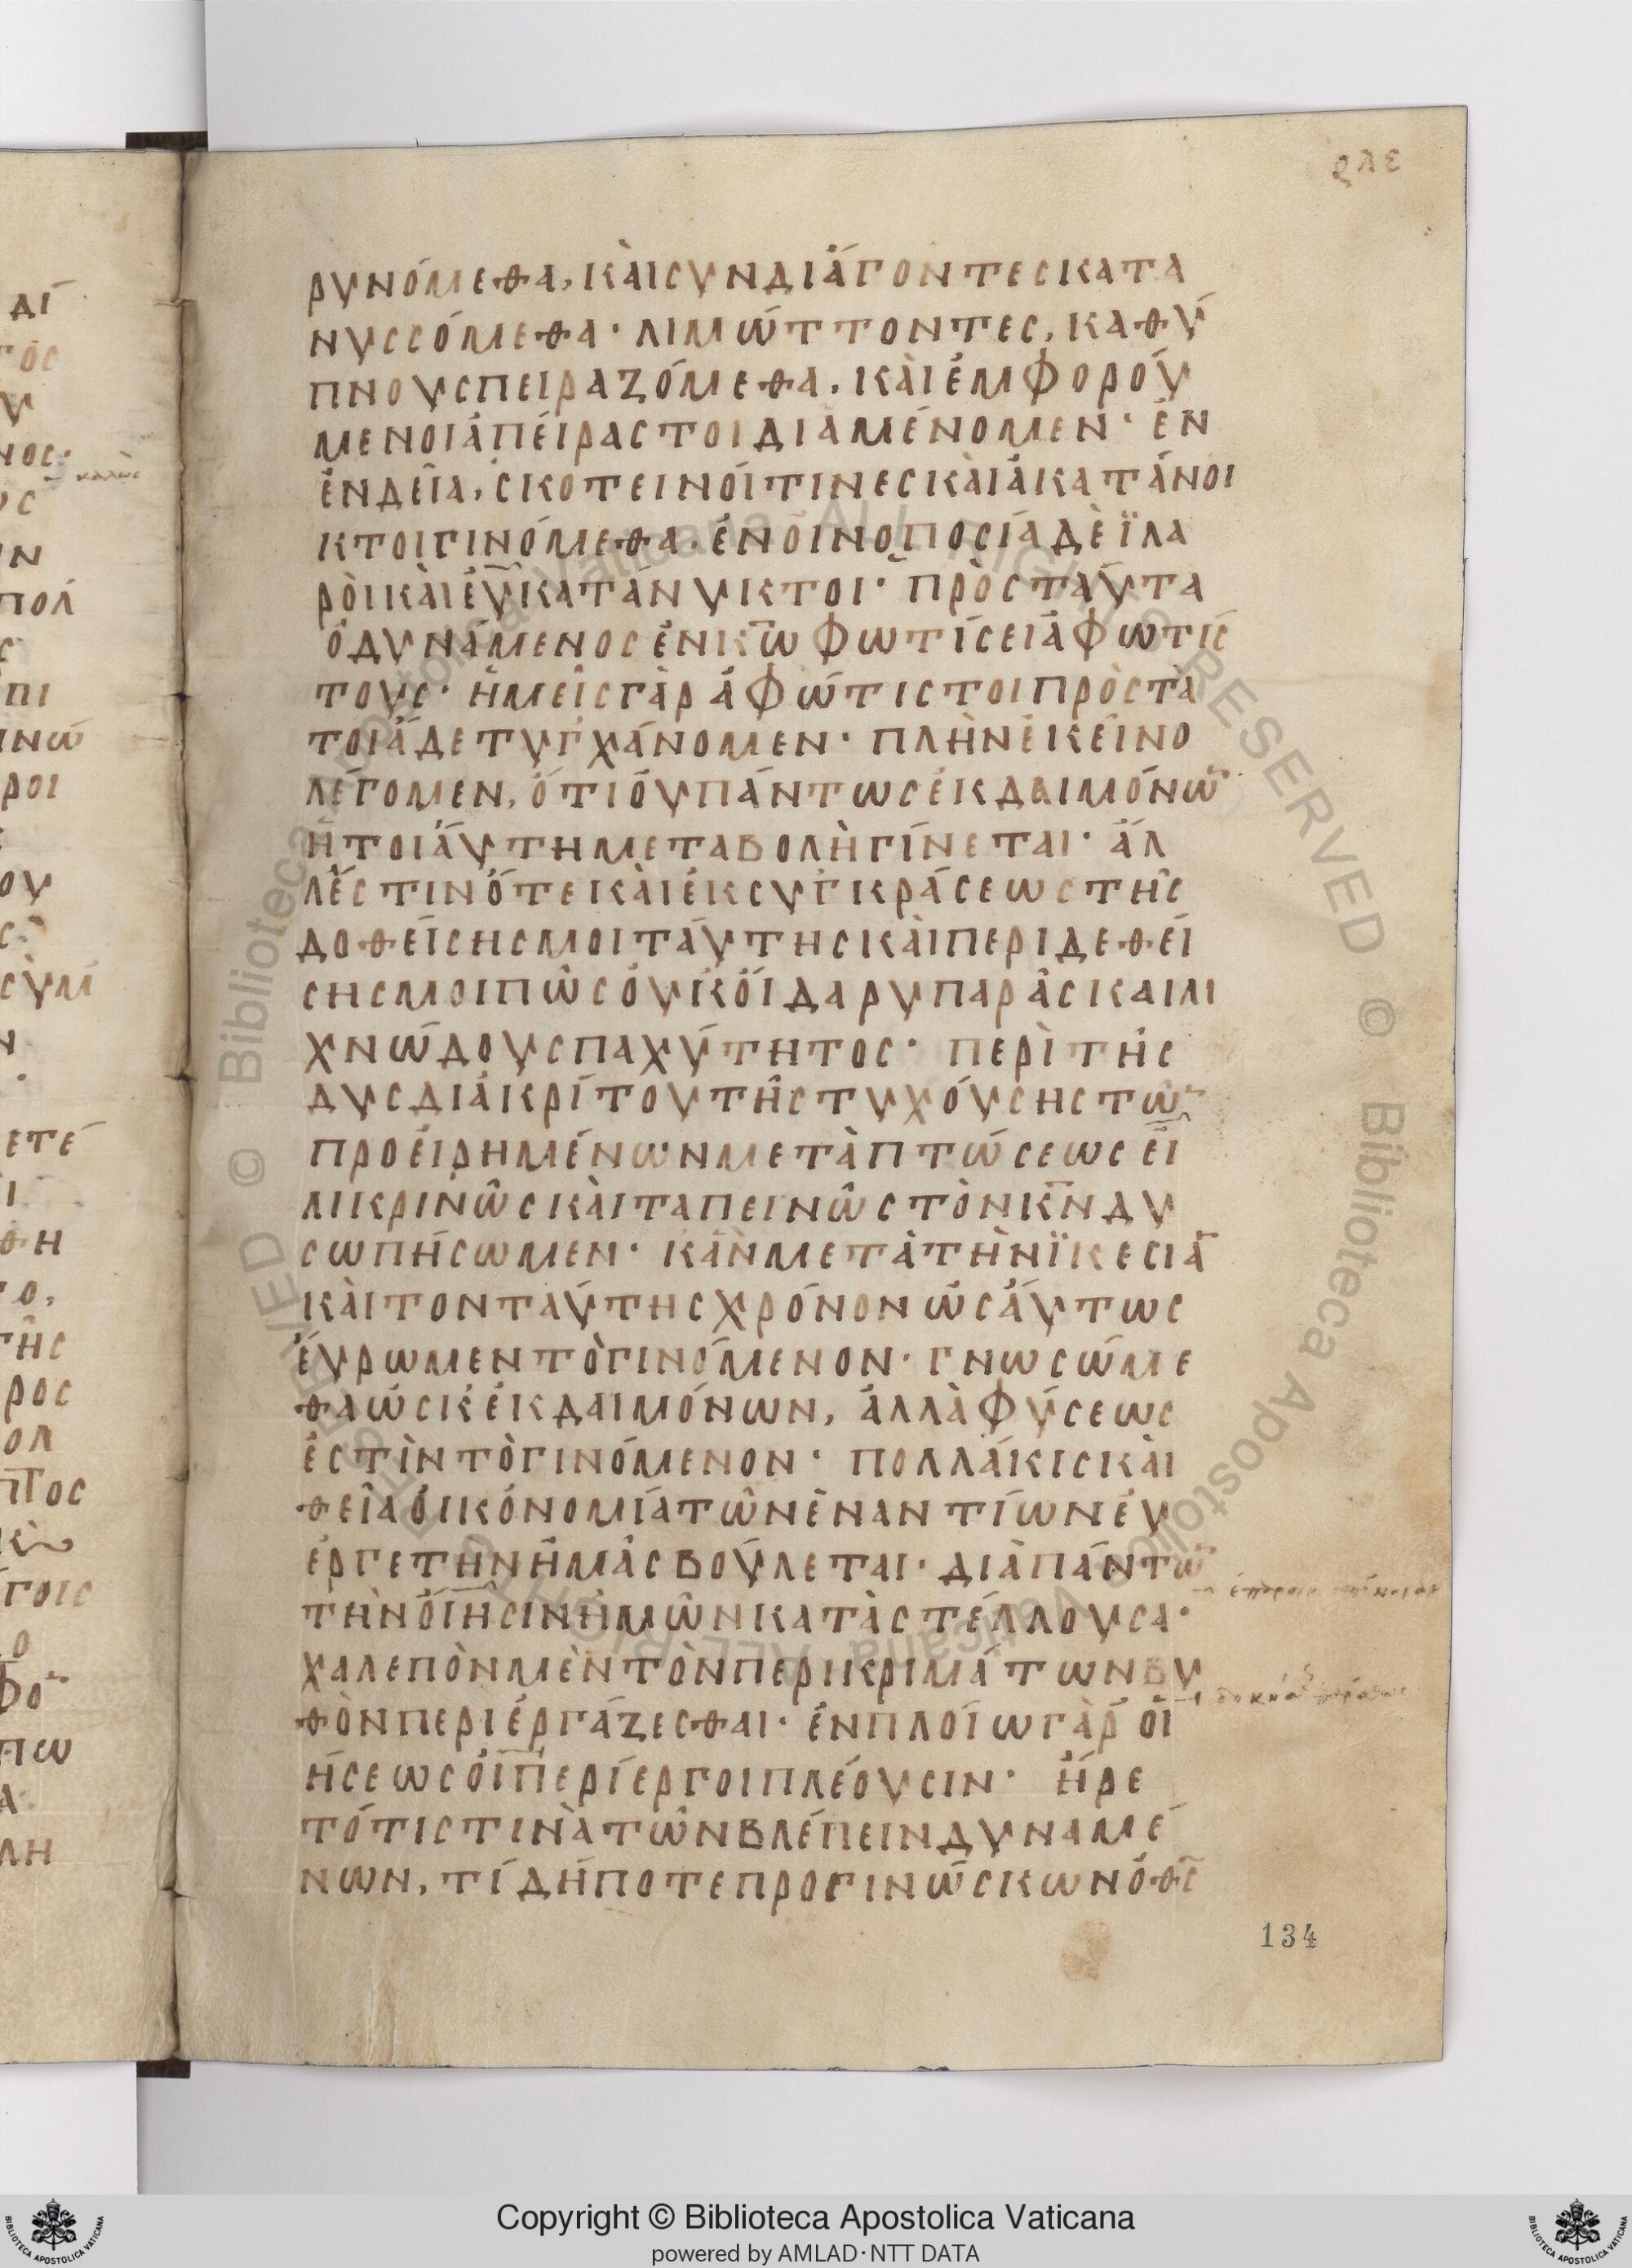 ρλε
ρυνόμεθα, κὰι συνδιάγοντες κατα
νυσσόμεθα· λιμώττοντες, καθύ
πνους πειραζόμεθα, κὰι ἐμφορού
μενοι ἀπείραστοι διαμένομεν· ἐν
ἐνδεῖα, σκοτεινόι τινες κὰι ἀκατάνοι
κτοι γινόμεθα. ἐν ὀινοποσία δὲ ϊλα
ρὸι κὰι ἐυκατάνυκτοι· πρὸς ταύτα
ὁ δυνάμενος ἐν κ̅ω̅ φωτίσει ἀφωτίσ
τους· ἡμεῖς γὰρ ἀφώτιστοι πρὸς τὰ
τοιάδε τυγχάνομεν· πλὴν ἐκεῖνο
λέγομεν, ὅτι ὀυ πάντως ἐκ δαιμόνω̅
ἡ τοιάυτη μεταβολὴ γίνεται· ἀλ
λ' ἔστιν ὅτε κὰι ἐκ συγκράσεως τῆς
δοθείσης μοι τάυτης κὰι περιδεθεί
σης μοι πῶς ὀυκ ὅιδα ρυπαρᾶς και λι
χνώδους παχύτητος· περὶ τῆς
δυσδιακρίτου τῆς τυχόυσης τῶ̅
προειρημένων μεταπτώσεως ἐι
λικρινῶς κὰι ταπεινῶς τὸν κ̅ν̅ δυ
σωπήσωμεν· κἂν μετὰ τὴν ϊκεσία̅
κὰι τον ταύτης χρόνον ὡσάυτως
ἕυρωμεν τὸ γινόμενον· γνωσώμε
θα ὡς ὀυκ ἐκ δαιμόνων, ἀλλὰ φύσεως
ἐστὶν τὸ γινόμενον· πολλάκις κὰι
θεῖα ὀικονομία τῶν ἐναντίων ἐυ
εργετῆν ἡμᾶς βούλεται· διὰ πάντω̅
τὴν ὄιησιν ἡμῶν καταστέλλουσα·
χαλεπὸν μὲν τὸν περι κριμάτων βυ
θὸν περιεργάζεσθαι· ἐν πλοίω γὰρ ὀι
ήσεως ὁι περίεργοι πλέουσιν· ἤρε
τό τις τινὰ τῶν βλέπειν δυναμέ
νων, τί δήποτε προγινώσκων ὁ θ̅ς̅
134
Copyright © Biblioteca Apostolica Vaticana
powered by AMLAD·NTT DATA